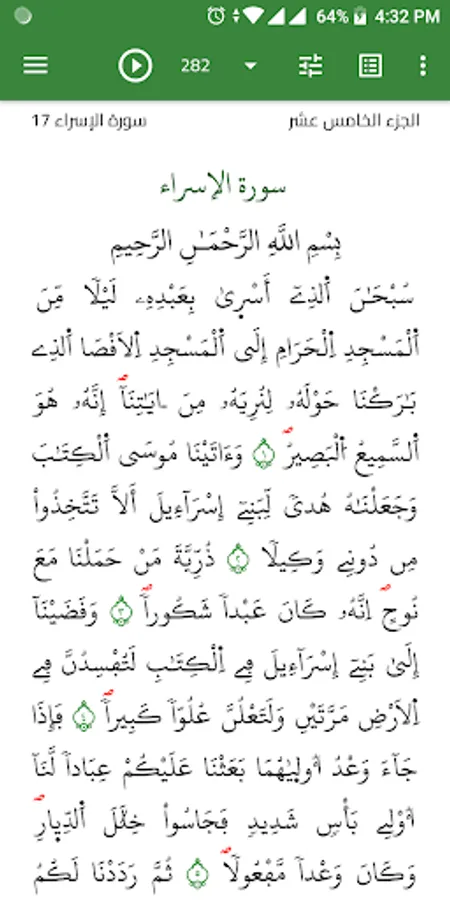 64% 4:32 PM
282
سورة الإسراء 17 الجزء الخامس عشر
سورة الإسراء
بِسْمِ اللَّهِ الرَّحْمَٰنِ الرَّحِيمِ
سُبْحَٰنَ اَ۬لذِےٓ أَسْر۪ىٰ بِعَبْدِهِۦ لَيْلٗا مِّنَ
اَ۬لْمَسْجِدِ اِ۬لْحَرَامِ إِلَي اَ۬لْمَسْجِدِ اِ۬لَاقْصَا اَ۬لذِے
بَٰرَكْنَا حَوْلَهُۥ لِنُرِيَهُۥ مِنَ ايَٰتِنَآۖ إِنَّهُۥ هُوَ
اَ۬لسَّمِيعُ اُ۬لْبَصِيرُۖ ١ وَءَاتَيْنَا مُوسَي اَ۬لْكِتَٰبَ
وَجَعَلْنَٰهُ هُديٗ لِّبَنِےٓ إِسْرَآءِيلَ أَلَّا تَتَّخِذُواْ
مِن دُونِے وَكِيلٗا ٢ ذُرِّيَّةَ مَنْ حَمَلْنَا مَعَ
نُوحٍۖ اِنَّهُۥ كَانَ عَبْداٗ شَكُوراٗۖ ٣ وَقَضَيْنَآ
إِلَيٰ بَنِےٓ إِسْرَآءِيلَ فِے اِ۬لْكِتَٰبِ لَتُفْسِدُنَّ فِے
اِ۬لَارْضِ مَرَّتَيْنِ وَلَتَعْلُنَّ عُلُوّاٗ كَبِيراٗۖ ٤ فَإِذَا
جَآءَ وَعْدُ أُول۪يٰهُمَا بَعَثْنَا عَلَيْكُمْ عِبَاداٗ لَّنَآ
أُوْلِے بَأْسٖ شَدِيدٖ فَجَاسُواْ خِلَٰلَ اَ۬لدِّيٰ۪ارِۖ
وَكَانَ وَعْداٗ مَّفْعُولاٗۖ ٥ ثُمَّ رَدَدْنَا لَكُمُ